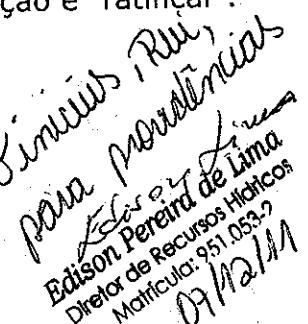 ção e "ratificar".
Vinicius, Rui,
para providências
Edison Lima
Edison Pereira de Lima
Diretor de Recursos Hídricos
Matrícula: 951.053-7
07/12/11